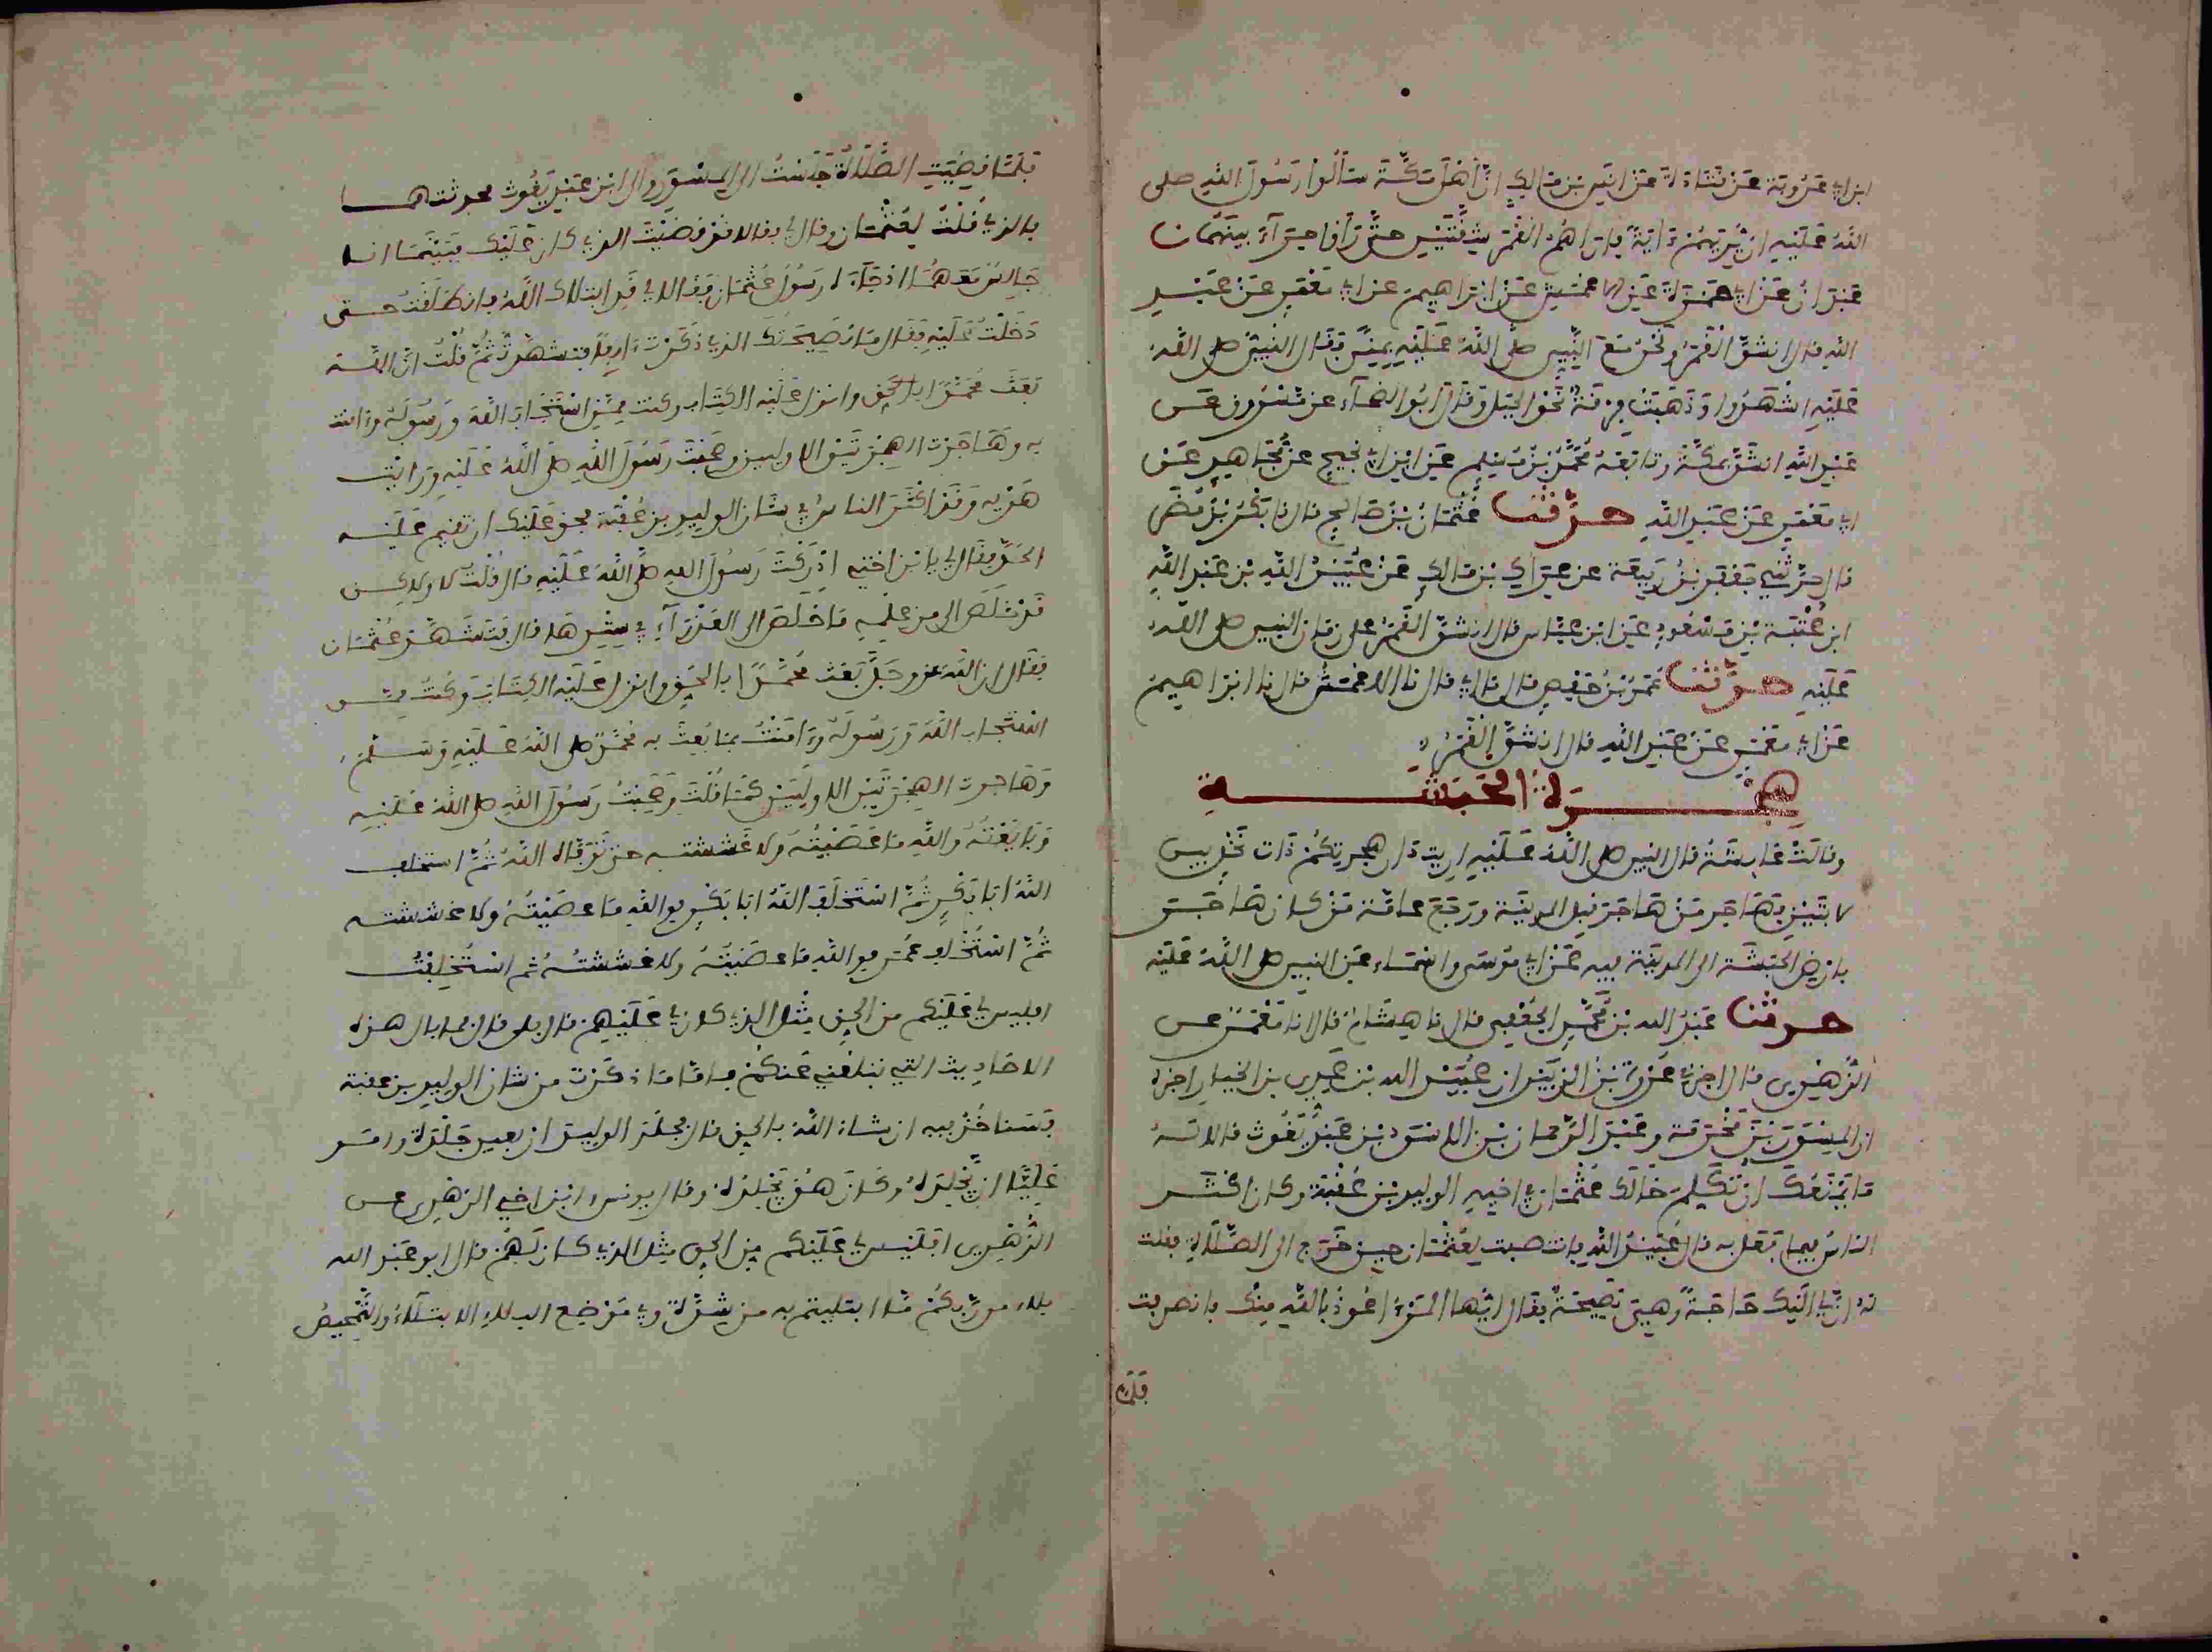 ابن أبي عَرُوبَة عَنْ قَتَادَةَ عَنْ أَنَسِ بْنِ مَالِكٍ أنَّ أَهْلَ مَكَّةَ سَأَلُوا رَسُولَ اللهِ صلى
اللهُ عَلَيْهِ أن يُرِيَهُمْ ءَايَةً فأرَاهُمُ القَمَرَ شِقَّتَيْنِ حَتَّى رَأَوْا حِرَاءَ بينهما نا
عَبْدَانُ عَنْ أبي حَمْزَةَ عَنِ الاعمشِ عَنْ إبْرَاهِيمَ عن أبي مَعْمَرٍ عَنْ عَبْدِ
اللهِ قال انشقَّ القَمَرُ ونَحْنُ مَعَ النَّبِيِّ صلى اللهُ عَلَيْهِ بِمِنًى فقال النبيُّ صلى اللهُ
عَلَيْهِ اشْهَدُوا وَذَهَبَتْ فِرْقَةٌ نَحْوَ الجَبَلِ وقال أبُو الضحاء عن مَسْرُوقٍ عَنْ
عَبْدِ اللهِ انشَقَّ بمكَّةَ وتابَعَهُ مُحَمَّدُ بْنُ مُسْلِمٍ عَنِ ابْنِ أبي نجيحٍ عن مُجَاهِدٍ عَنْ
أبي مَعْمَرٍ عَنْ عَبْدِ اللهِ حدّثنا عُثْمَانُ بْنُ صَالِحٍ قال نا بَكْرُ بْنُ مُضَرَ
قال حدّثني جَعْفَرُ بْنُ رَبِيعَة عن عِرَاكِ بْنِ مَالِكٍ عَنْ عُبَيْدِ اللهِ بْنِ عَبْدِ اللهِ
ابنِ عُتْبَةَ بْنِ مَسْعُودٍ عَنِ ابْنِ عَبَّاس قال انشقَّ القَمَرُ على زمان النبيِّ صلى اللهُ
عَلَيْهِ حدّثنا عُمَرُ بْنُ حَفْصٍ قال نا أبي قال نا الاعْمَشُ قال نا إبْرَاهِيمُ
عَنْ أبي مَعْمَرٍ عَنْ عَبْدِ اللهِ قال انشقَّ القَمَرُ
هِجْرَةُ الحَبَشَةِ
وقَالَتْ عَايِشَةُ قال النبي صلى اللهُ عَلَيْهِ أريت دَارَ هجرتكم ذات نَخْلٍ بين
لابَتَيْنِ فَهَاجر مَنْ هَاجَرَ قبل المدينة ورَجَعَ عامّة مَنْ كان هَاجَرَ
بأرْضِ الحَبَشَة الى المدينة فيه عَنْ أبي مُوسَى وأسْمَاء عَنِ النبي صلى اللهُ عَلَيْه
حدثنا عَبْدُ الله بْن مُحَمَّدٍ الجُعْفِي قال نا هِشَامٌ قال أنَا مَعْمَرٌ عن
الزُّهْرِي قال اخبرني عُرْوَةُ بْنُ الزُّبَيْرِ ان عُبَيْدَ الله بْنَ عَدِي بن الخيارِ اخبره
ان المِسْوَرَ بْنَ مَخْرَمَة وعَبْدَ الرَّحمان بْنَ الاسْوَد بْنِ عَبْدِ يَغُوث قالا لَهُ
مَا يَمْنَعُكَ أن تُكَلِّمَ خَالَكَ عُثْمَان في أخيه الوليدِ بْنِ عُقْبَة وكان أكْثَرَ
الناسُ فيما فَعَلَ به قال عُبَيْدُ اللهِ فانتصبت لِعُثْمَان حين خَرَجَ الى الصَّلَاةِ فقلت
لهُ إنَّ لِي إلَيْكَ حَاجَةً وهِيَ نَصِيحَةٌ فقال أيُّها المَرْءُ أعُوذُ باللهِ مِنْكَ فانصرفت
فَلَمَّا
فَلَمَّا قَضَيْتُ الصَّلَاةَ جَلَسْتُ الى المِسْوَرِ والى ابْنِ عَبْدِ يَغُوث فحدثتهما
بالذي قُلْتُ لِعُثْمَان وقال لي فقالا قد قَضَيْتَ الذي كان عَلَيْكَ فَبَيْنَمَا انا
جَالِسٌ مَعَهُمَا إذ جَاءَنِي رَسُولُ عُثْمَان فقالا لي قد ابتلاك اللهُ فانطَلَقْتُ حتى
دَخَلْتُ عَلَيْهِ فَقَال مَا نَصِيحَتُكَ الذي ذَكَرْتَ ءانِفًا فتشهدتُ ثُمَّ قُلْتُ انّ الله
بَعَثَ مُحَمَّدًا بالحَقِّ وانزل عَلَيْهِ الكِتَاب وكنت مِمَّنِ اسْتَجَابَ للهِ وَرَسُولِهِ وءامنت
به وهَاجَرْتَ الهِجْرَتَيْنِ الاوليين وصَحِبْتَ رَسُولَ اللهِ صلى اللهُ عَلَيْهِ ورَأيْتَ
هَدْيَه وَقَدْ اكْثَرَ الناسُ في شَان الوليدِ بن عُقْبَة فحق عَلَيْكَ ان تقيم عَلَيْه
الحَدَّ فقال لي يا بْنَ اخي ادْرَكْتَ رَسُولَ الله صلى اللهُ عَلَيْهِ قال قُلْتُ لا ولكِن
قَدْ خَلَصَ الي من علمِهِ مَا خَلَصَ الى العَذْرَاءِ في سِتْرِهَا قال فتَشَهَّدَ عُثْمَان
فَقَال ان اللهَ عز وجَلَّ بَعَثَ مُحَمَّدًا بالحَقِّ وانزل عَلَيْه الكِتَابَ وكُنْتُ ممن
اسْتَجاب للهِ وَرَسُولِهِ وءَامَنْتُ بمَا بُعِثَ به مُحَمَّدٌ صلى اللهُ عَلَيْهِ وَسَلَّم
وَهَاجرت الهِجْرَتَيْنِ الاولَيَيْنِ كَمَا قُلْتَ وصَحِبْتُ رَسُولَ اللهِ صلى اللهُ عَلَيْهِ
وَبَايَعْتُهُ واللهِ مَا عَصَيْتُهُ ولا غَشَشته حتى تَوَفَّاه اللهُ ثُمَّ استخلف
اللهُ ابَا بَكْرٍ ثُمَّ اسْتَخلَفَ اللهُ ابَا بَكْرٍ فوالله مَا عصَيْتُهُ ولا غششته
ثُمَّ اسْتُخْلِفَ عُمَر فوالله مَا عصَيْتُهُ ولا غششتُهُ ثم اسْتُخْلِفْتُ
افليس لي عَلَيْكم من الحَقِّ مِثْل الذي كان لي عَلَيْهِم قال بلى قال فما بال هذه
الاحَادِيث التي تبلغني عَنكُمْ فامّا مَا ذكَرْتَ من شان الوليد بن عقبة
فسَنأخُذُ فيه ان شاء اللهُ بالحق قال فجلَدَ الوليدَ ارْبعين جَلْدَة وامَر
عَلِيًّا ان يَّجْلِدَهُ وكَانَ هُوَ يَجْلِدُهُ وقال يونس وابْن اخي الزهْري عن
الزُّهْرِي افَلَيْسَ لي عَلَيْكم مِن الحقِّ مِثْل الذي كَان لَهُمْ قال ابو عَبْدِ الله
بلاء من رَّبِّكُمْ مَا ابتليتم به من شِدَّة وفي مَوْضِع البَلاءِ الابتلَاءُ والتَّمْحِيصُ